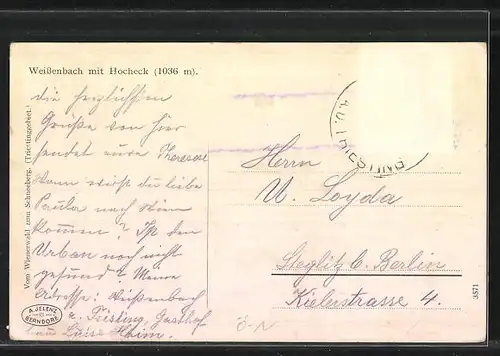 Weißenbach mit Hocheck (1036 m).
die herzlichsten
Grüße von hier
sendet eure Therese
wann wirst du liebe
Paula nach Wien
kommen? Ist dem
Urban noch nicht
gesund? Meine
Adresse: Weißenbach
a. Triesting, Gasthof
Luise Heim.
Vom Wienerwald zum Schneeberg. (Triestinggebiet.)
A. JELENZ
BERNDORF
Herrn
U. Loyda
Steglitz b. Berlin
Kielerstrasse 4.
Ö-N
3571